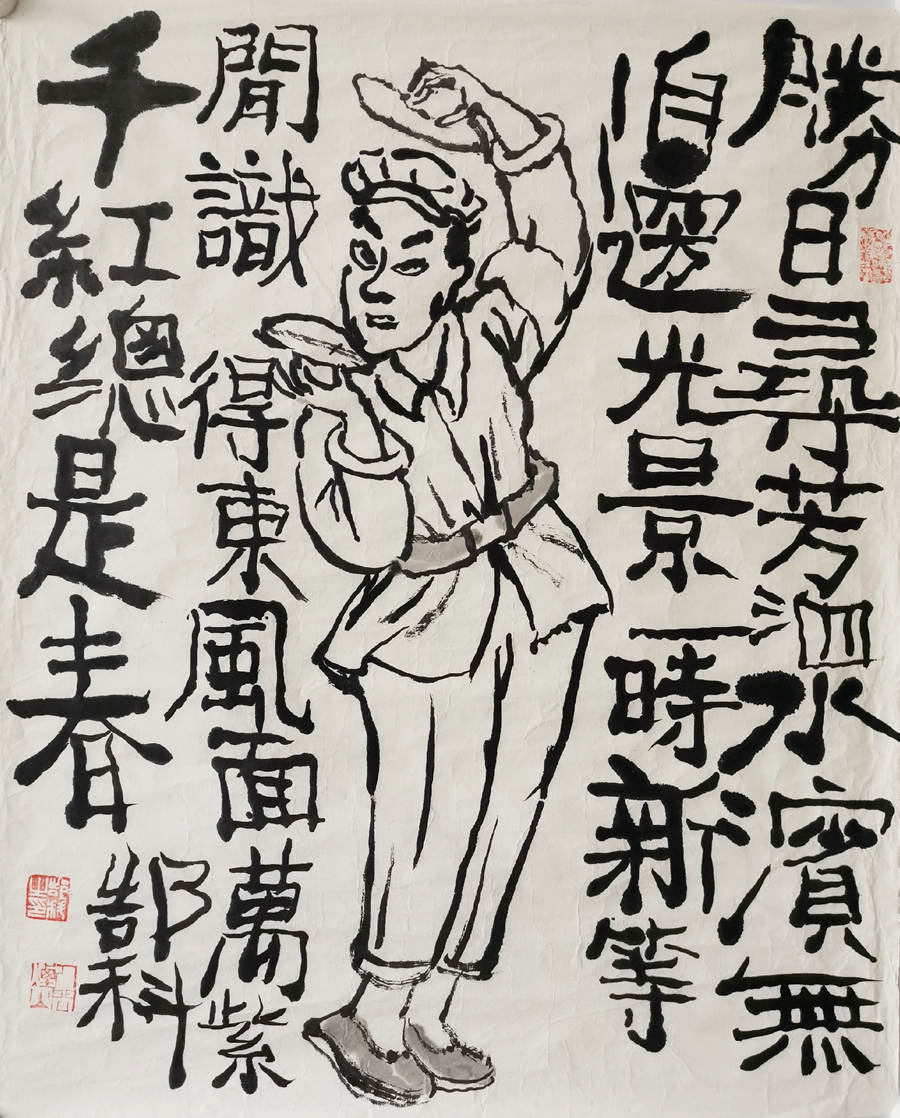 勝日尋芳泗水濱無
邊光景一時新等
閒識得東風面萬紫
千紅總是春
郜科